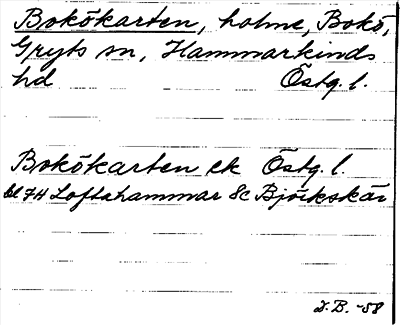 Bokökarten, holme, Bokö,
Gryts sn, Hammarkinds
hd Östg. l.
Bokökarten ek Östg. l.
bl 7H Loftahammar 8c Björkskär
I.B. -58